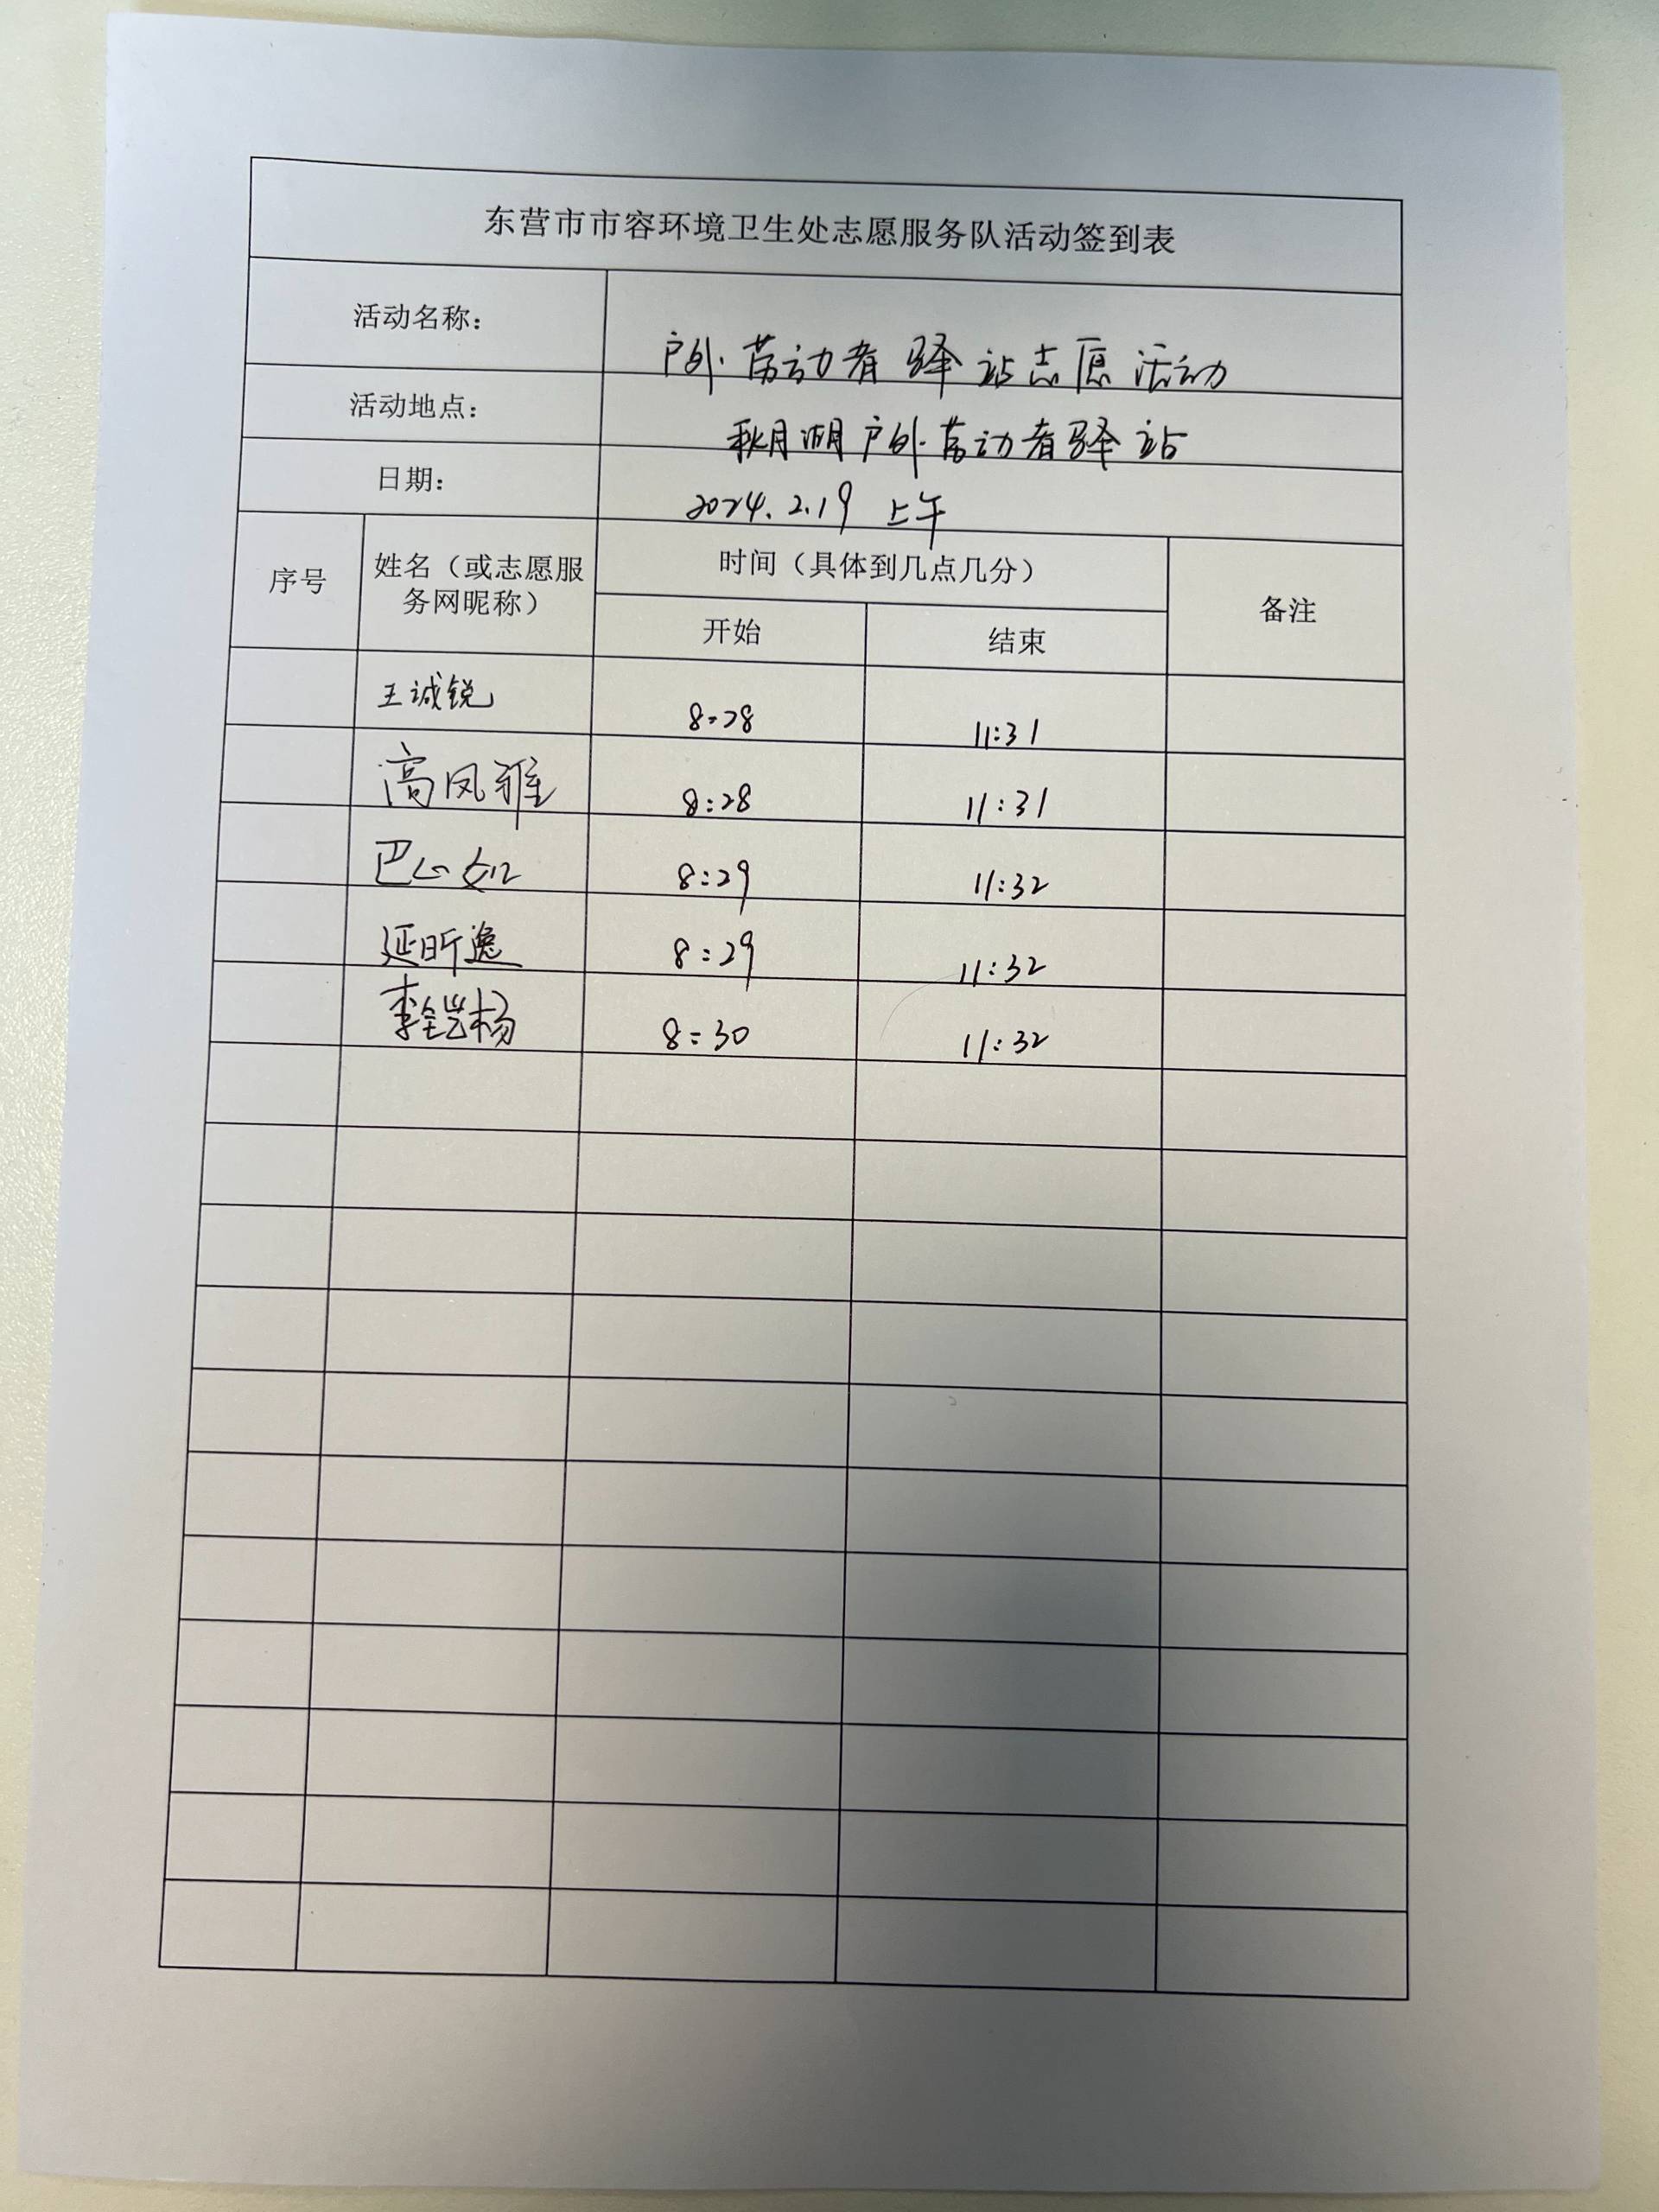 东营市市容环境卫生处志愿服务队活动签到表
活动名称： 户外劳动者驿站志愿活动
活动地点： 秋月湖户外劳动者驿站
日期： 2024.2.19 上午
序号 姓名（或志愿服务网昵称） 时间（具体到几点几分） 备注
开始 结束
王诚锐 8:28 11:31
高凤雅 8:28 11:31
巴心如 8:29 11:32
延昕逸 8:29 11:32
李铠杨 8:30 11:32